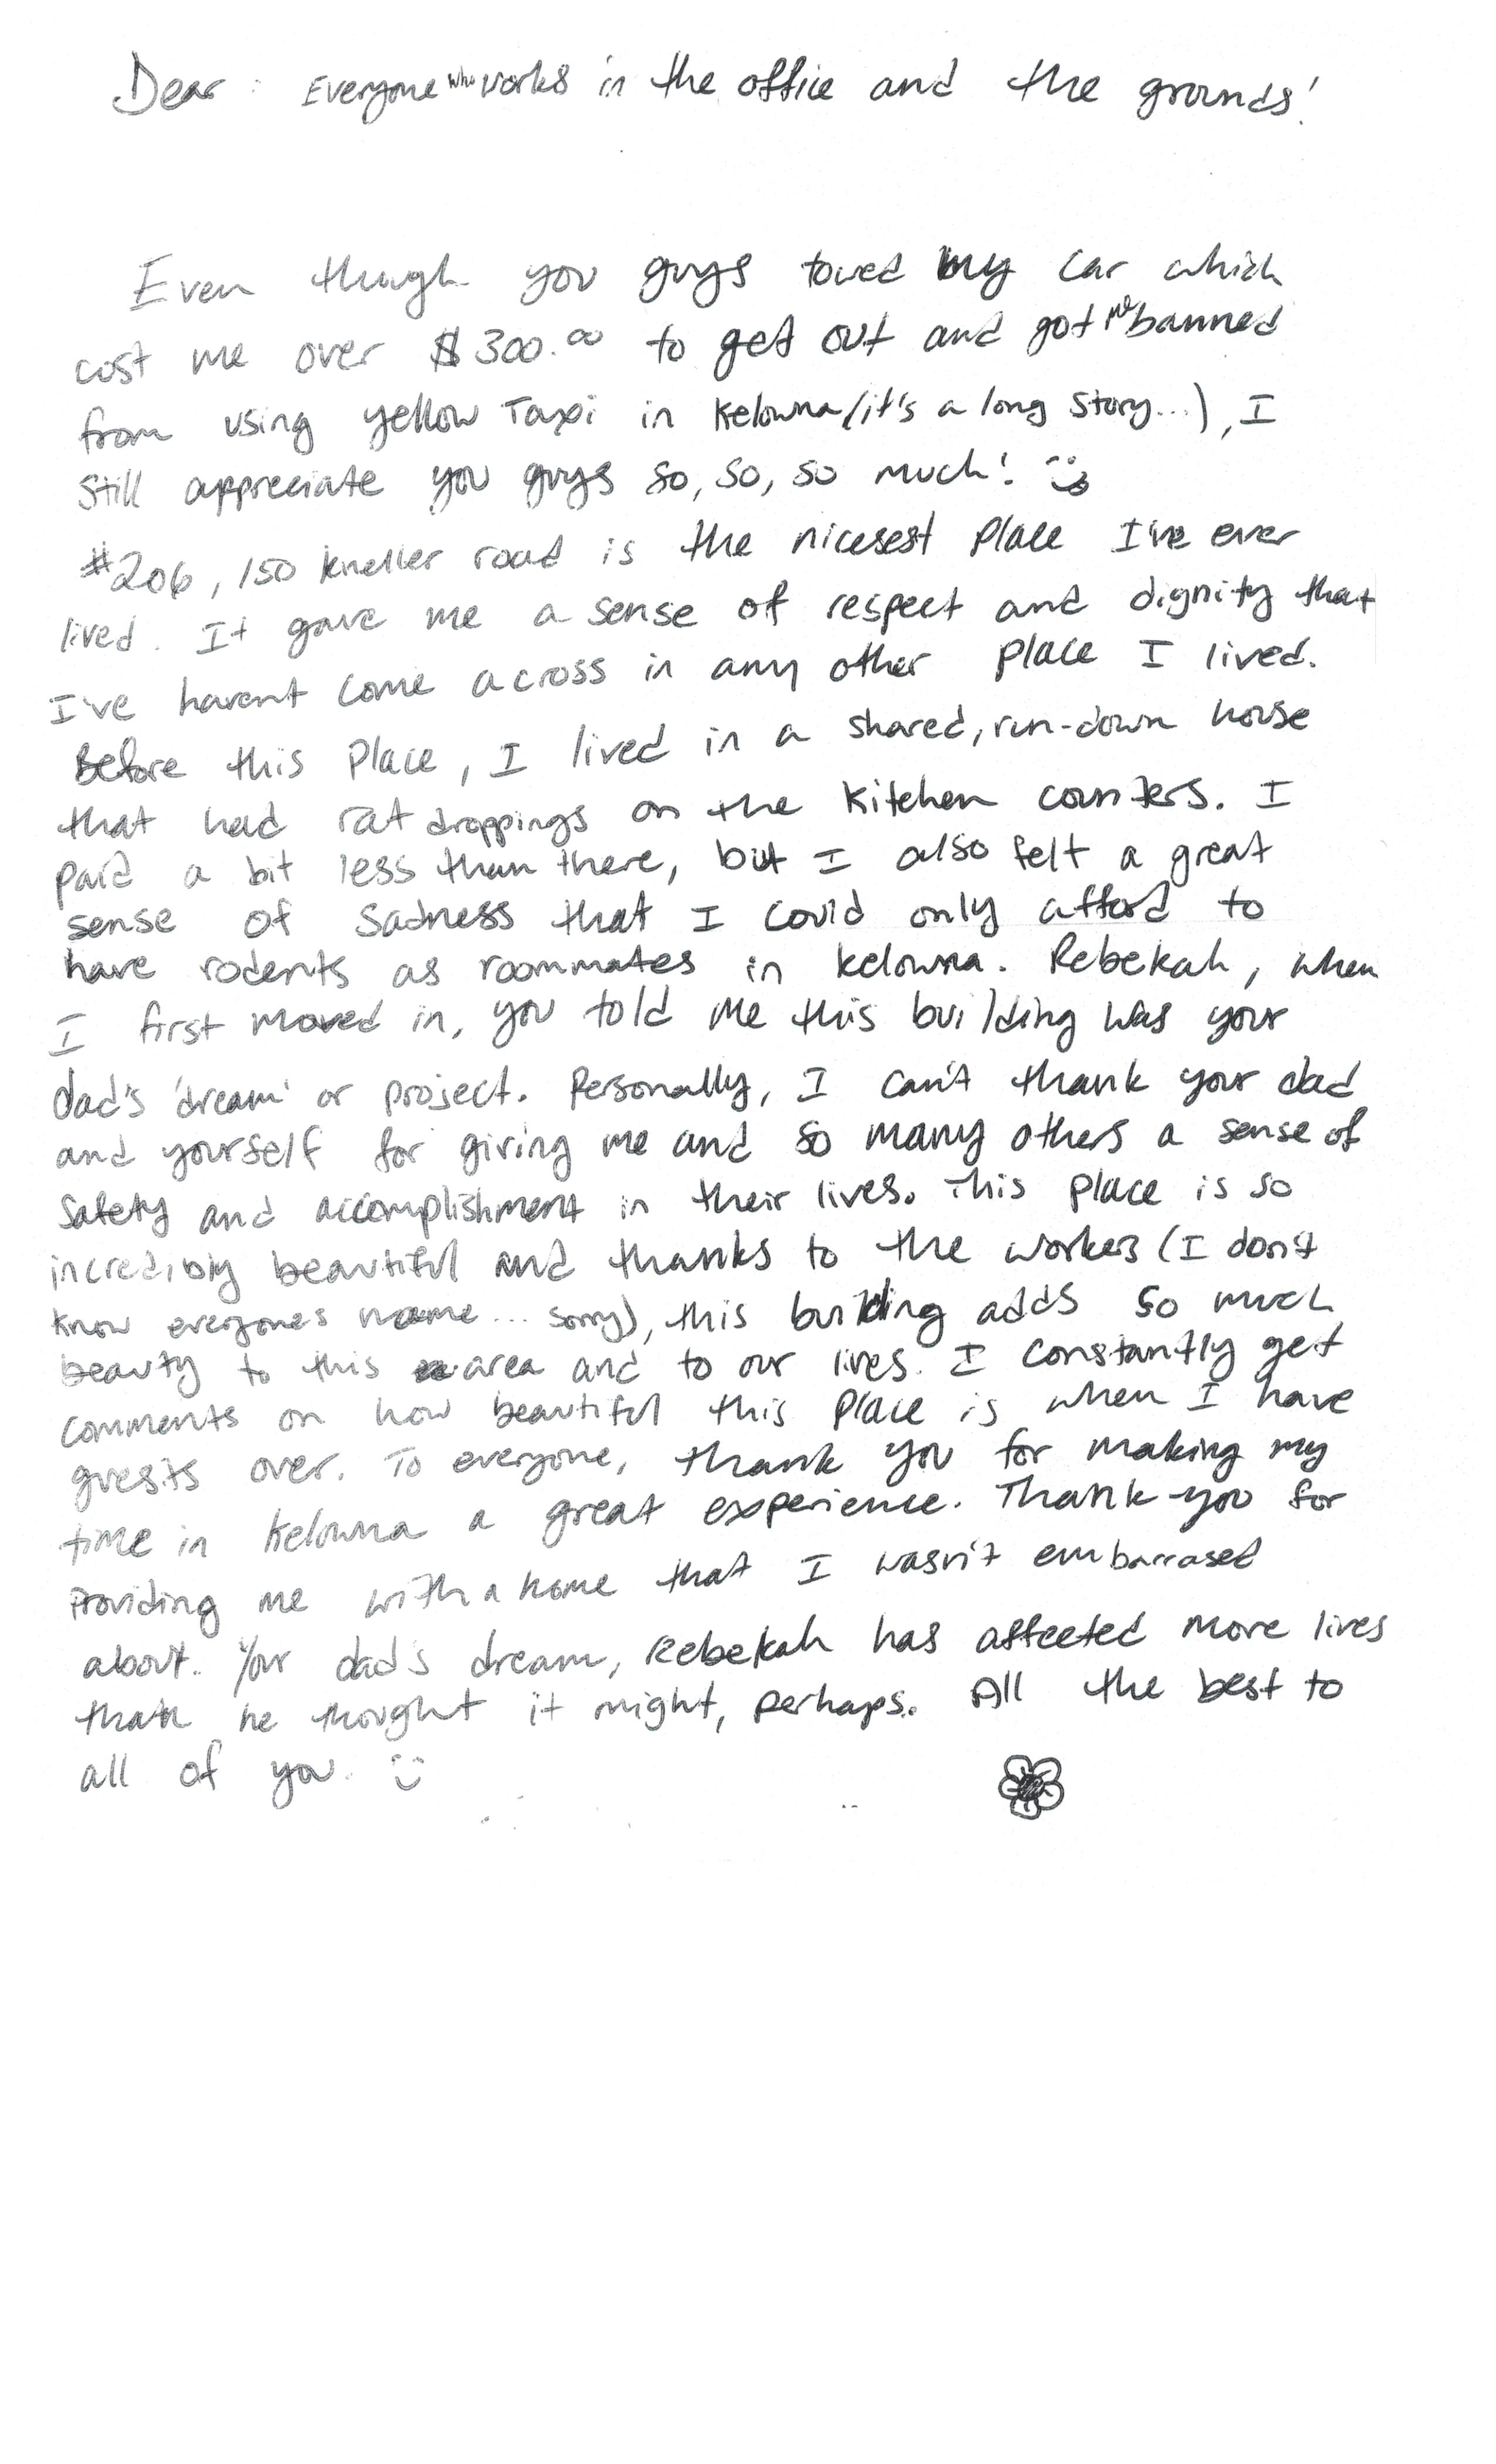 Dear: Everyone who works in the office and the grounds!
Even though you guys towed my car which
cost me over $300.00 to get out and got me banned
from using yellow Taxi in Kelowna (it's a long story...), I
still appreciate you guys so, so, so much! :)
#206, 150 kneller road is the nicesest place I've ever
lived. It gave me a sense of respect and dignity that
I've havent come across in any other place I lived.
Before this place, I lived in a shared, run-down house
that had rat droppings on the kitchen counters. I
paid a bit less than there, but I also felt a great
sense of sadness that I could only afford to
have rodents as roommates in kelowna. Rebekah, when
I first moved in, you told me this building was your
dad's 'dream' or project. Personally, I can't thank your dad
and yourself for giving me and so many others a sense of
safety and accomplishment in their lives. This place is so
incredibly beautiful and thanks to the workers (I don't
know everyone's name... sorry), this building adds so much
beauty to this area and to our lives. I constantly get
comments on how beautiful this place is when I have
guests over. To everyone, thank you for making my
time in kelowna a great experience. Thank-you for
Providing me with a home that I wasn't embarrased
about. Your dad's dream, Rebekah has affected more lives
than he thought it might, perhaps. All the best to
all of you. :)